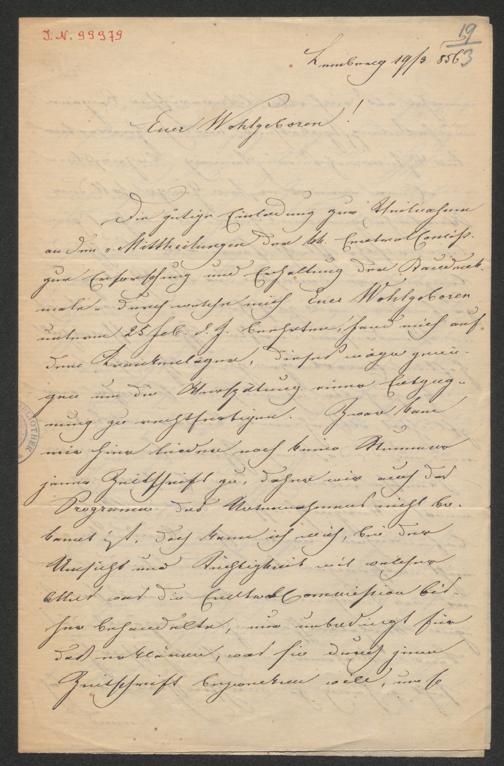 I. N. 99979
19/3
Lemberg 19/3 856
Euer Wohlgeboren!
Die gütige Einladung zur Theilnahme
an den „Mittheilungen der kk. Central Comiss.
zur Erforschung und Erhaltung der Baudenk-
male“ durch welche mich Euer Wohlgeboren
unterm 25 Feb. d. J. beehrten, fand mich auf
dem Krankenlager, dieses möge genü-
gen um die Verspätung einer Entgeg-
nung zu rechtfertigen. Zwar kam
mir hier leider noch keine Nummer
jener Zeitschrift zu, daher mir auch das
Programm des Unternehmens nicht be-
kannt ist, doch kann ich mich, bei der
Umsicht und Tüchtigkeit mit welcher
Alles was die Central Commission bis-
her behandelte, nur unbedingt für
das erklären, was sie durch jene
Zeitschrift bezwecken will, um so